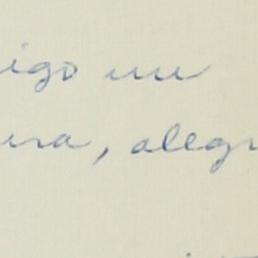 igo un
ura, alegr